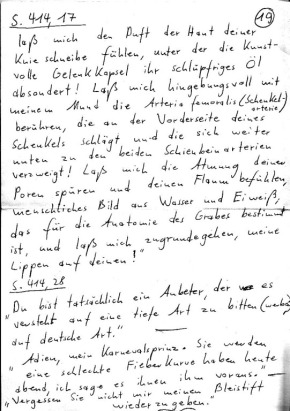 S. 414, 17
19
laß mich den Duft der Haut deiner
Kniescheibe fühlen, unter der die Kunst-
volle Gelenkkapsel ihr schlüpfriges Öl
absondert! Laß mich hingebungsvoll mit
meinem Mund die Arteria femoralis (Schenkel-
arterie)
berühren, die an der Vorderseite deines
Schenkels schlägt und die sich weiter
unten zu den beiden Schienbeinarterien
verzweigt! Laß mich die Atmung deiner
Poren spüren und deinen Flaum befühlen,
menschliches Bild aus Wasser und Eiweiß,
das für die Anatomie des Grabes bestimmt
ist, und laß mich zugrundegehen, meine
Lippen auf deinen!"
S. 414, 28
"Du bist tatsächlich ein Anbeter, der es
versteht auf eine tiefe Art zu bitten (werben)
auf deutsche Art."
"Adieu, mein Karnevalsprinz. Sie werden
eine schlechte Fieberkurve haben heute
abend, ich sage es ihnen ihm voraus."
"Vergessen Sie nicht mir meinen Bleistift
wiederzugeben"